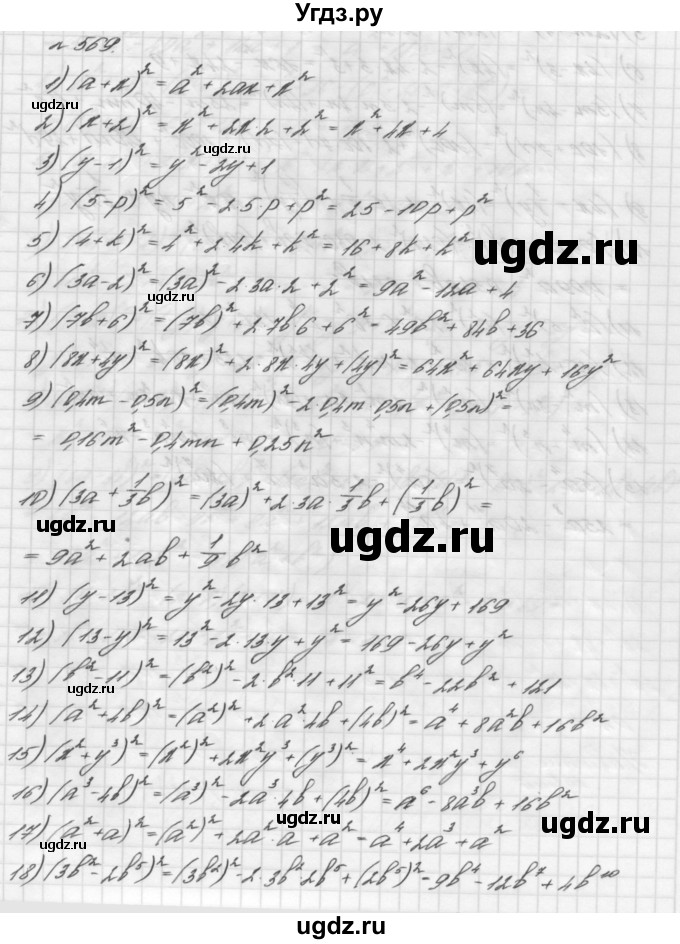 Угдз.ру
№ 569.
1) (a+x)² = a² + 2ax + x²
ugdz.ru
2) (x+2)² = x² + 2x 2 + 2² = x² + 4x + 4
3) (y-1)² = y² - 2y + 1
ugdz.ru
4) (5-p)² = 5² - 2·5p + p² = 25 - 10p + p²
5) (4+k)² = 4² + 2·4k + k² = 16 + 8k + k²
ugdz.ru
6) (3a-2)² = (3a)² - 2·3a·2 + 2² = 9a² - 12a + 4
ugdz.ru
7) (7b+6)² = (7b)² + 2·7b 6 + 6² = 49b² + 84b + 36
8) (8x+4y)² = (8x)² + 2·8x·4y + (4y)² = 64x² + 64xy + 16y²
9) (0,4m - 0,5n)² = (0,4m)² - 2·0,4m 0,5n + (0,5n)² =
= 0,16m² - 0,4mn + 0,25n²
10) (3a + 1/3 b)² = (3a)² + 2·3a·1/3 b + (1/3 b)² =
ugdz.ru
ugdz.ru
= 9a² + 2ab + 1/9 b²
11) (y-13)² = y² - 2y·13 + 13² = y² - 26y + 169
12) (13-y)² = 13² - 2·13y + y² = 169 - 26y + y²
13) (b²-11)² = (b²)² - 2·b²·11 + 11² = b⁴ - 22b² + 121
ugdz.ru
14) (a²+4b)² = (a²)² + 2a²·4b + (4b)² = a⁴ + 8a²b + 16b²
15) (x²+y³)² = (x²)² + 2x²y³ + (y³)² = x⁴ + 2x²y³ + y⁶
16) (a³-4b)² = (a³)² - 2a³·4b + (4b)² = a⁶ - 8a³b + 16b²
ugdz.ru
ugdz.ru
17) (a²+a)² = (a²)² + 2a²·a + a² = a⁴ + 2a³ + a²
18) (3b²-2b⁵)² = (3b²)² - 2·3b²·2b⁵ + (2b⁵)² = 9b⁴ - 12b⁷ + 4b¹⁰
ugdz.ru
ugdz.ru